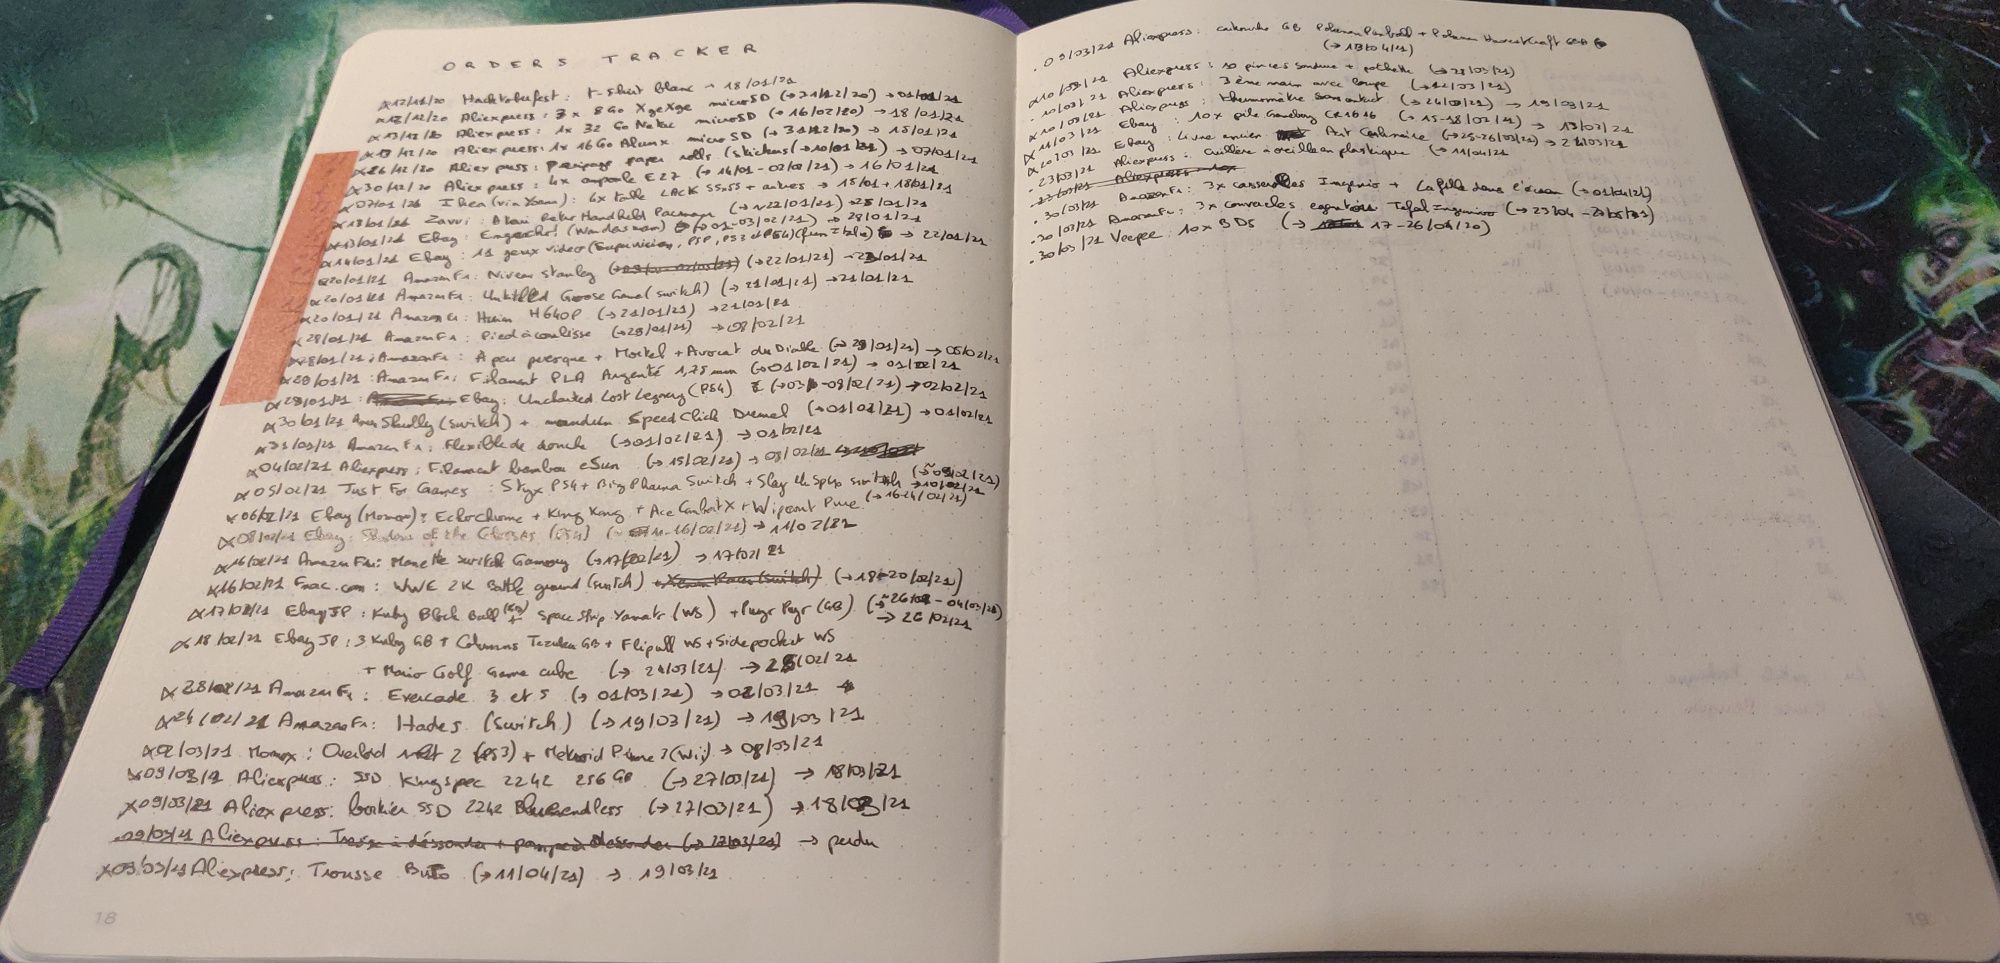 ORDERS TRACKER
x12/11/20 Hacktoberfest : t-shirt blanc → 18/01/21
x12/12/20 Aliexpress : 3 x 8Go XgeXge microSD (→21/12/20) → 01/01/21
x13/12/20 Aliexpress : 1x 32 Go Netac microSD (→ 16/02/20) → 18/01/21
12/20 Aliexpress : 1x 16Go Alunx microSD (→ 31/12/20) → 15/01/21
x26/12/20 Aliexpress : Peripage paper rolls (stickers) (→ 10/01/21) → 07/01/21
x30/12/20 Aliexpress : 4x ampoule E27 (→ 14/01 - 02/02/21) → 16/01/21
x07/01/21 Ikea (via Yoann) : 4x table LACK 55x55 + autres → 15/01 + 18/01/21
Zavvi : Atari Retro Handheld Pacman (→ ~22/01/21) → 25/01/21
x13/01/21 Ebay : (Wonderswan) (→ 01-03/02/21) → 28/01/21
x14/01/21 Ebay : 11 jeux video (Supervision, PSP, PS3 et PS4) → 22/01/21
x20/01/21 AmazonFr : Niveau Stanley (→22/01/21) → 23/01/21
x20/01/21 AmazonFr : Untitled Goose Game (switch) (→ 21/01/21) → 21/01/21
x20/01/21 AmazonFr : H640P (→21/01/21) → 21/01/21
x28/01/21 AmazonFr : Pied à coulisse (→29/01/21) → 08/02/21
x28/01/21 : AmazonFr : A peu presque + Mortel + Avocat du Diable (→ 29/01/21) → 05/02/21
x29/01/21 : AmazonFr : Filament PLA Argenté 1,75mm (→01/02/21) → 01/02/21
x28/01/21 : Ebay : Uncharted Lost Legacy (PS4) (→03-08/02/21) → 02/02/21
x30/01/21 (switch) + mandrin SpeedClick Dremel (→01/02/21) → 01/02/21
x31/01/21 AmazonFr : Flexible de douche (→01/02/21) → 01/02/21
x04/02/21 Aliexpress : Filament bambou eSun (→ 15/02/21) → 09/02/21
x05/02/21 Just For Games : Styx PS4 + Big Pharma Switch + Slay the Spire switch (→ ~09/02/21) → 10/02/21
x06/02/21 Ebay (Momox) : Echochrome + King Kong + Ace Combat X + Wipeout Pure (→16-24/02/21)
x08/02/21 Ebay : Shadow of the Colossus (PS4) (→ 11-16/02/21) → 11/02/21
x16/02/21 AmazonFr : Manette switch (→17/02/21) → 17/02/21
x16/02/21 Fnac.com : WWE 2K Battleground (switch) (→18-20/02/21)
x17/02/21 EbayJP : Kirby Block Ball (GB) + Space Ship Yamato (WS) + Puyo Puyo (GB) (→ ~26/02 - 04/03/21) → 26/02/21
x18/02/21 EbayJP : 3 Kirby GB + Columns Tezuka GB + Flipull WS + Sidepocket WS
+ Mario Golf Game cube (→ 21/03/21) → 25/02/21
x28/02/21 AmazonFr : Evercade 3 et 5 (→ 01/03/21) → 02/03/21
x24/02/21 AmazonFr : Hades (switch) (→ 19/03/21) → 19/03/21
x02/03/21 Momox : Overlord 1 et 2 (PS3) + Metroid Prime 3 (Wii) → 08/03/21
x09/03/21 Aliexpress : SSD Kingspec 2242 256 GB (→ 27/03/21) → 18/03/21
x09/03/21 Aliexpress : boitier SSD 2242 Blueendless (→ 27/03/21) → 18/03/21
09/03/21 Aliexpress : Tresse à dessouder + pompe à dessouder (→ 27/03/21) → perdu
x09/03/21 Aliexpress : Trousse (→ 11/04/21) → 19/03/21
18
. 09/03/21 Aliexpress : cartouche GB Pokemon Pinball + Pokemon
(→ 18/04/21)
x10/03/21 Aliexpress : 10 pinces + pochette (→ 28/03/21)
. 10/03/21 Aliexpress : 3ème main avec loupe (→ 12/03/21)
x10/03/21 Aliexpress : thermomètre sans contact (→ 24/03/21) → 19/03/21
x11/03/21 Ebay : 10x pile Gameboy CR1616 (→ 15-18/03/21) → 19/03/21
x20/03/21 Ebay : Livre ancien Art Culinaire (→25-26/03/21) → 26/03/21
. 23/03/21 Aliexpress : cuillère à oreille en plastique (→ 11/04/21)
Aliexpress : 10x
. 30/03/21 AmazonFr : 3x casseroles Ingenio + La fille dans l'écran (→ 01/04/21)
. 30/03/21 AmazonFr : 3x couvercles Tefal Ingenio (→ 23/04 - 20/05/21)
. 30/03/21 Veepee : 10x BDS (→ 17-26/04/20)
19